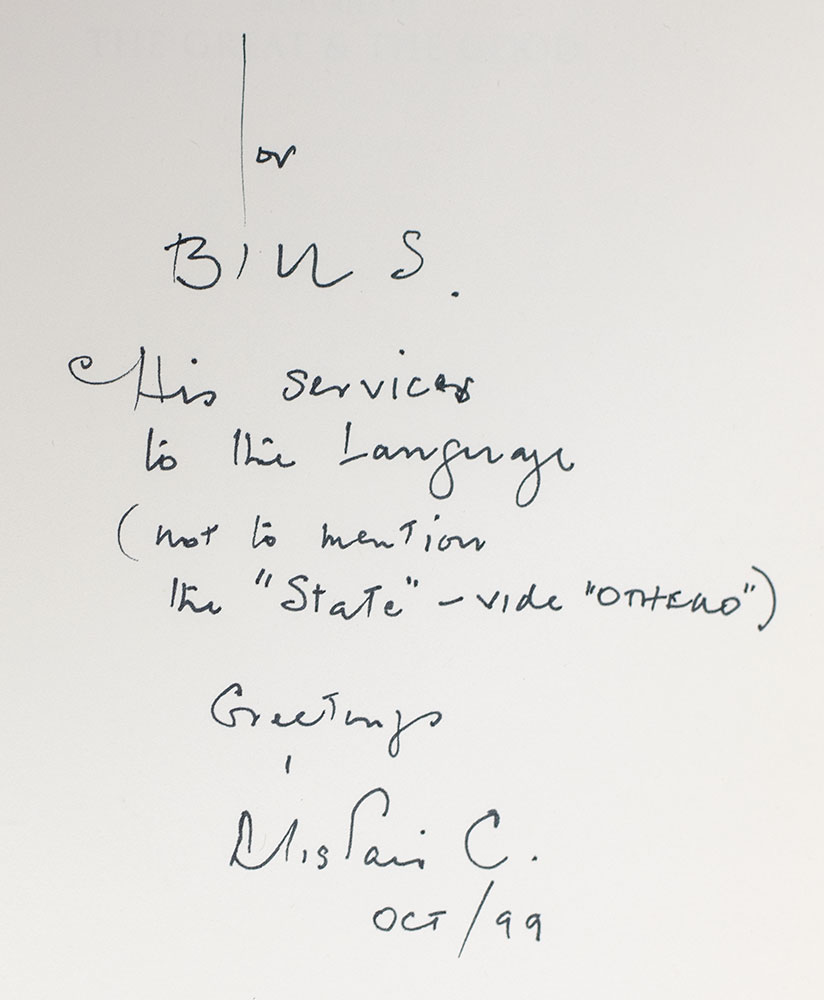 For
Bill S.
His services
to the Language
(not to mention
the "State" - vide "OTHELLO")
Greetings
Alistair C.
OCT/99